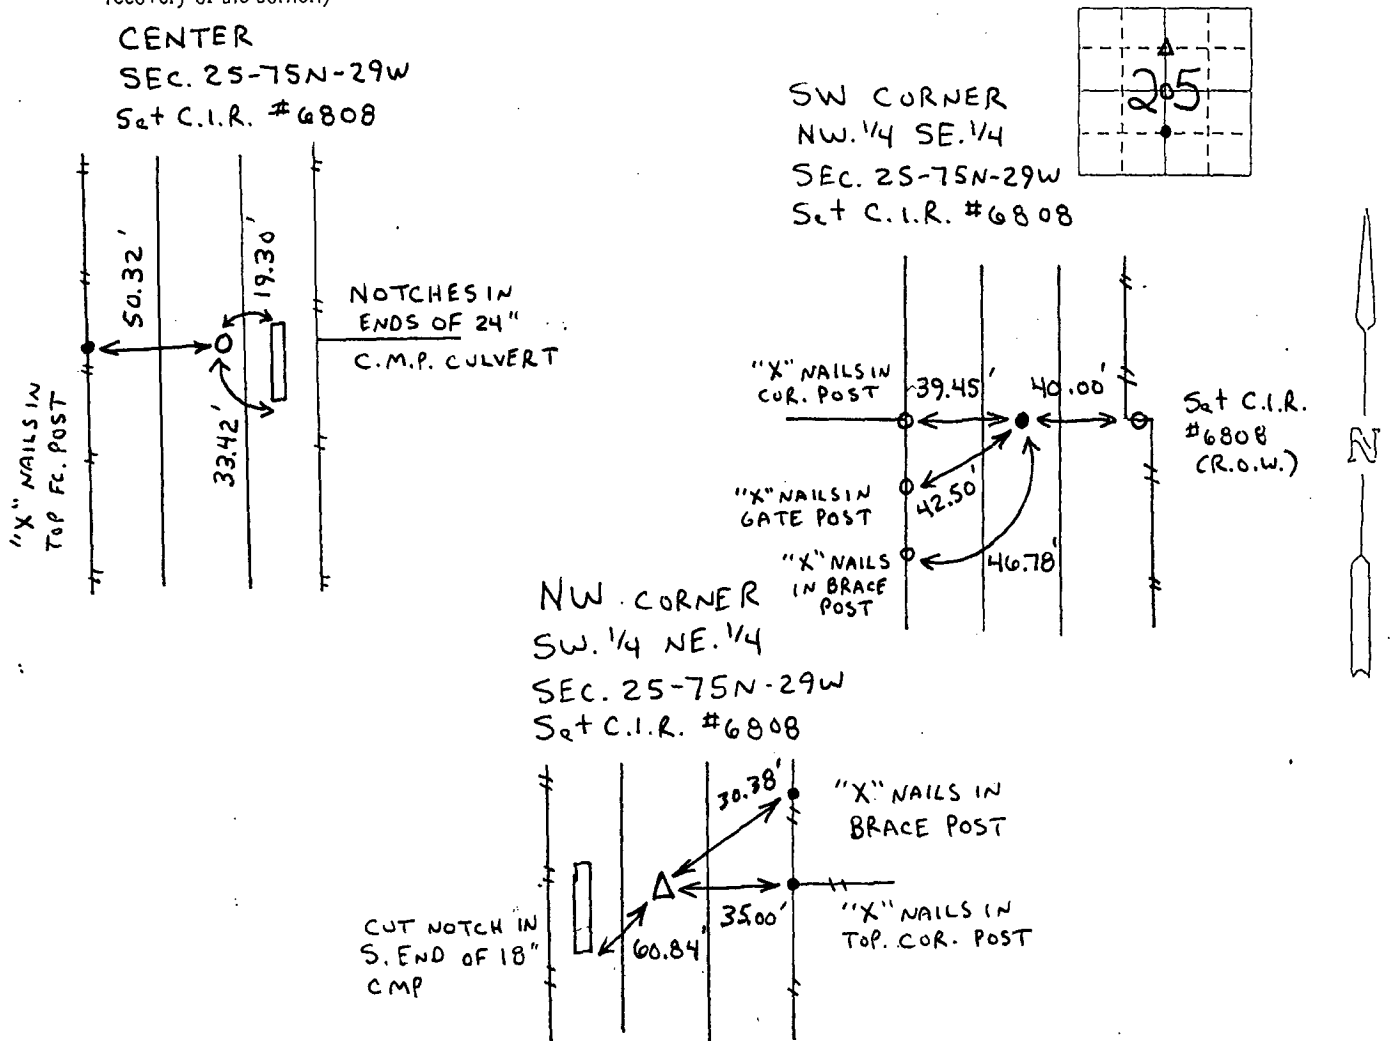 CENTER
SEC. 25-75N-29W
Set C.I.R. #6808
50.32'
19.30'
33.42'
NOTCHES IN
ENDS OF 24"
C.M.P. CULVERT
"X" NAILS IN
TOP FC. POST
25
SW CORNER
NW. 1/4 SE. 1/4
SEC. 25-75N-29W
Set C.I.R. #6808
"X" NAILS IN
COR. POST
39.45'
40.00'
Set C.I.R.
#6808
(R.O.W.)
"X" NAILS IN
GATE POST
42.50'
"X" NAILS
IN BRACE
POST
46.78'
N
NW. CORNER
SW. 1/4 NE. 1/4
SEC. 25-75N-29W
Set C.I.R. #6808
30.38'
"X" NAILS IN
BRACE POST
35.00'
"X" NAILS IN
TOP. COR. POST
60.84'
CUT NOTCH IN
S. END OF 18"
CMP